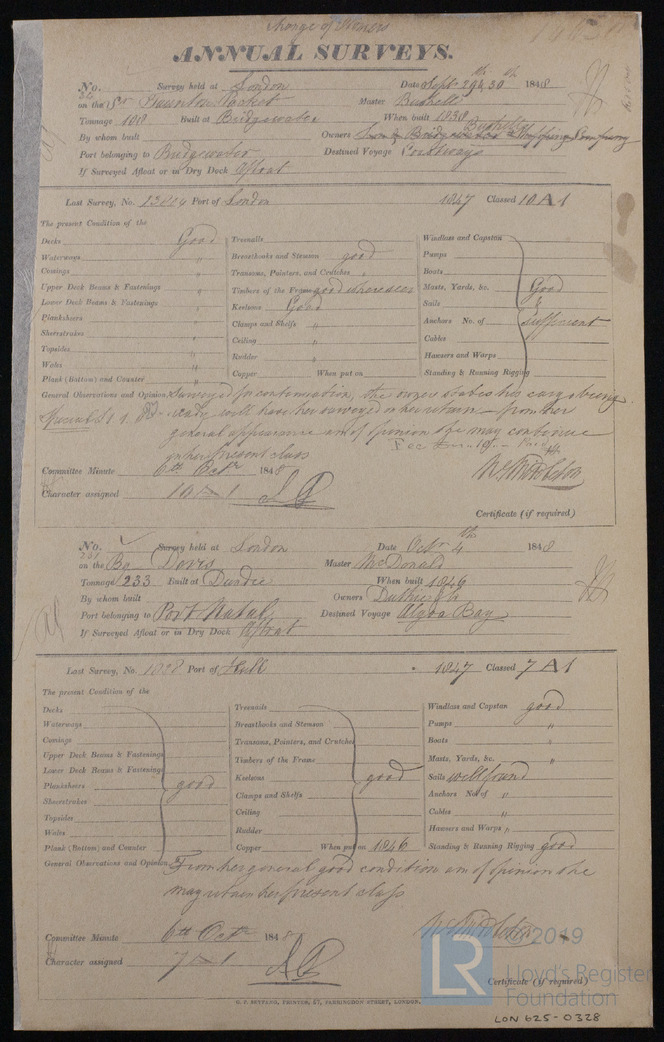 Change of Owners
ANNUAL SURVEYS.
No. Surveys held at London Date Sept 29 & 30 1848
on the Sr Taunton Packet Master Bushell
Tonnage 108 Built at Bridgewater When built 1838
By whom built Owners Bushell
Port belonging to Bridgewater Destined Voyage Coastways
If Surveyed Afloat or in Dry Dock Afloat
Last Survey, No. Port of London 1847 Classed 10 A 1
The present Condition of the
Decks Good Treenails Windlass and Capstan
Waterways " Breasthooks and Stemson good Pumps
Comings " Transoms, Pointers, and Crutches " Boats
Upper Deck Beams & Fastenings " Timbers of the Frame good where seen Masts, Yards, &c. Good
Lower Deck Beams & Fastenings " Keelsons Good Sails "
Planksheers " Clamps and Shelfs " Anchors No. of sufficient
Sheerstrakes " Ceiling " Cables
Topsides " Rudder " Hawsers and Warps
Wales " Copper When put on Standing & Running Rigging
Plank (Bottom) and Counter "
General Observations and Opinion Surveyed for continuation, the owner states his cargo being
ready will have her surveyed on her return - from her
general appearance am of opinion she may continue
in her present class
Fee
Committee Minute 6th Octr 1848
Character assigned 10 A 1
Certificate (if required)
No. Survey held at London Date Octr 4th 1848
on the Bg Doris Master McDonald
Tonnage 233 Built at Dundee When built 1846
By whom built Owners Duthie & Co
Port belonging to Port Natal Destined Voyage Algoa Bay
If Surveyed Afloat or in Dry Dock Afloat
Last Survey, No. 1088 Port of Hull 1847 Classed 7 A 1
The present Condition of the
Decks Treenails Windlass and Capstan good
Waterways Breasthooks and Stemson Pumps "
Comings Transoms, Pointers, and Crutches Boats "
Upper Deck Beams & Fastenings Timbers of the Frame Masts, Yards, &c. "
Lower Deck Beams & Fastenings Keelsons good Sails well found
Planksheers good Clamps and Shelfs Anchors No. of "
Sheerstrakes Ceiling Cables "
Topsides Rudder Hawsers and Warps "
Wales Copper When put on 1846 Standing & Running Rigging good
Plank (Bottom) and Counter
General Observations and Opinion From her general good condition am of opinion she
may retain her present class
Committee Minute 6th Octr 1848
Character assigned 7 A 1
Certificate (if required)
LR 2019
Lloyd's Register
Foundation
LON 625-0328